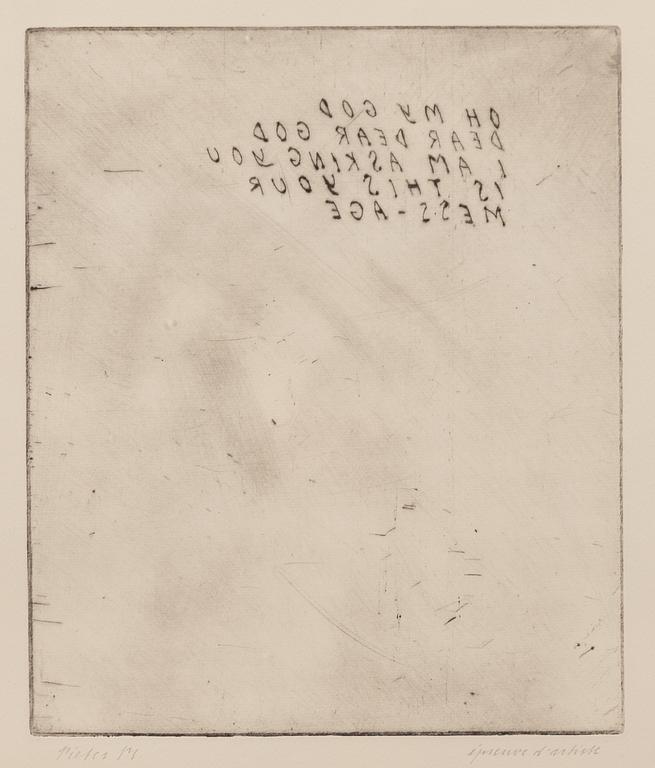 OH MY GOD
DEAR DEAR GOD
I AM ASKING YOU
IS THIS YOUR
MESS-AGE
épreuve d'artiste